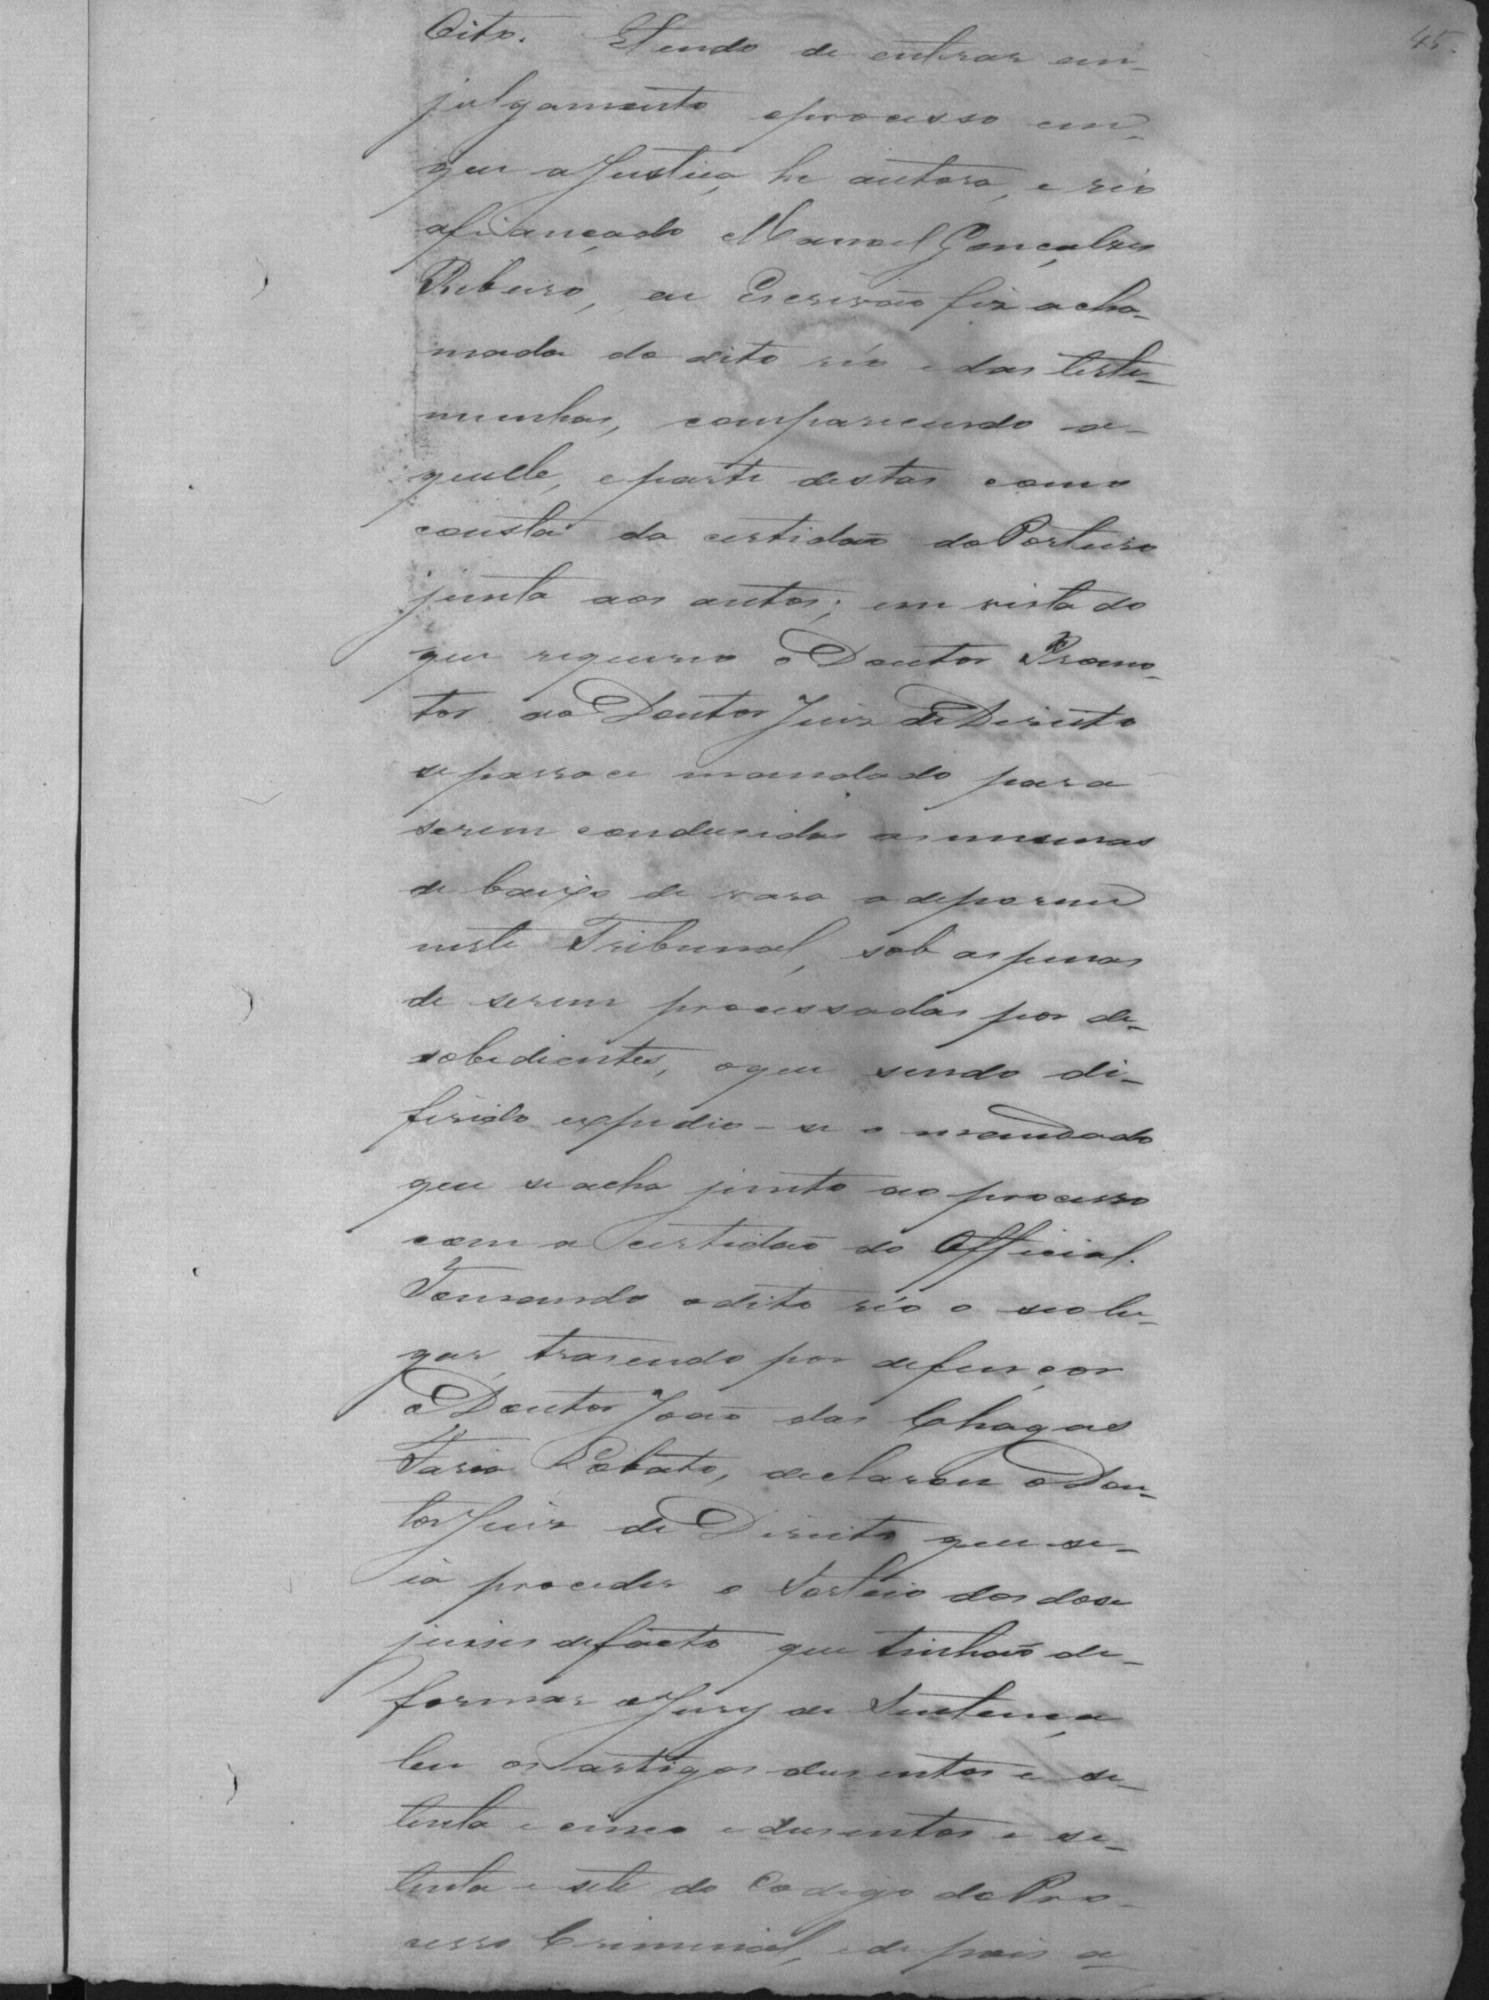 45.
Oito. E tendo de entrar em
julgamento o processo em
que a Justiça he autora, e réo
afiançado Manoel Gonçalves
Ribeiro, eu Escrivão fiz a cha-
mada do dito réo e das teste-
munhas, comparecendo a-
quelle, e parte destas como
consta da certidão do Porteiro
junta aos autos; em vista do
que requereo o Doutor Promo-
tor ao Doutor Juiz de Direito
se passace mandado para
serem condusidas as mesmas
de baixo de vara a deporem
neste Tribunal, sob as penas
de serem processadas por de-
sobedientes, o que sendo di-
ferido expedio-se o mandado
que se acha junto ao processo
com a certidão do Official.
Tomando o dito réo o seo lu-
gar, trasendo por defençor
o Doutor João das Chagas
Faria Lobato, declarou o Dou-
tor Juiz de Direito que se
ia proceder o Sorteio dos dose
juises de facto que tinhão de
formar o Jury de Sentença,
leu os artigos dusentos e se-
tenta e cinco e dusentos e se-
tenta e sete do Codigo do Pro-
cesso Criminal, e depois a-